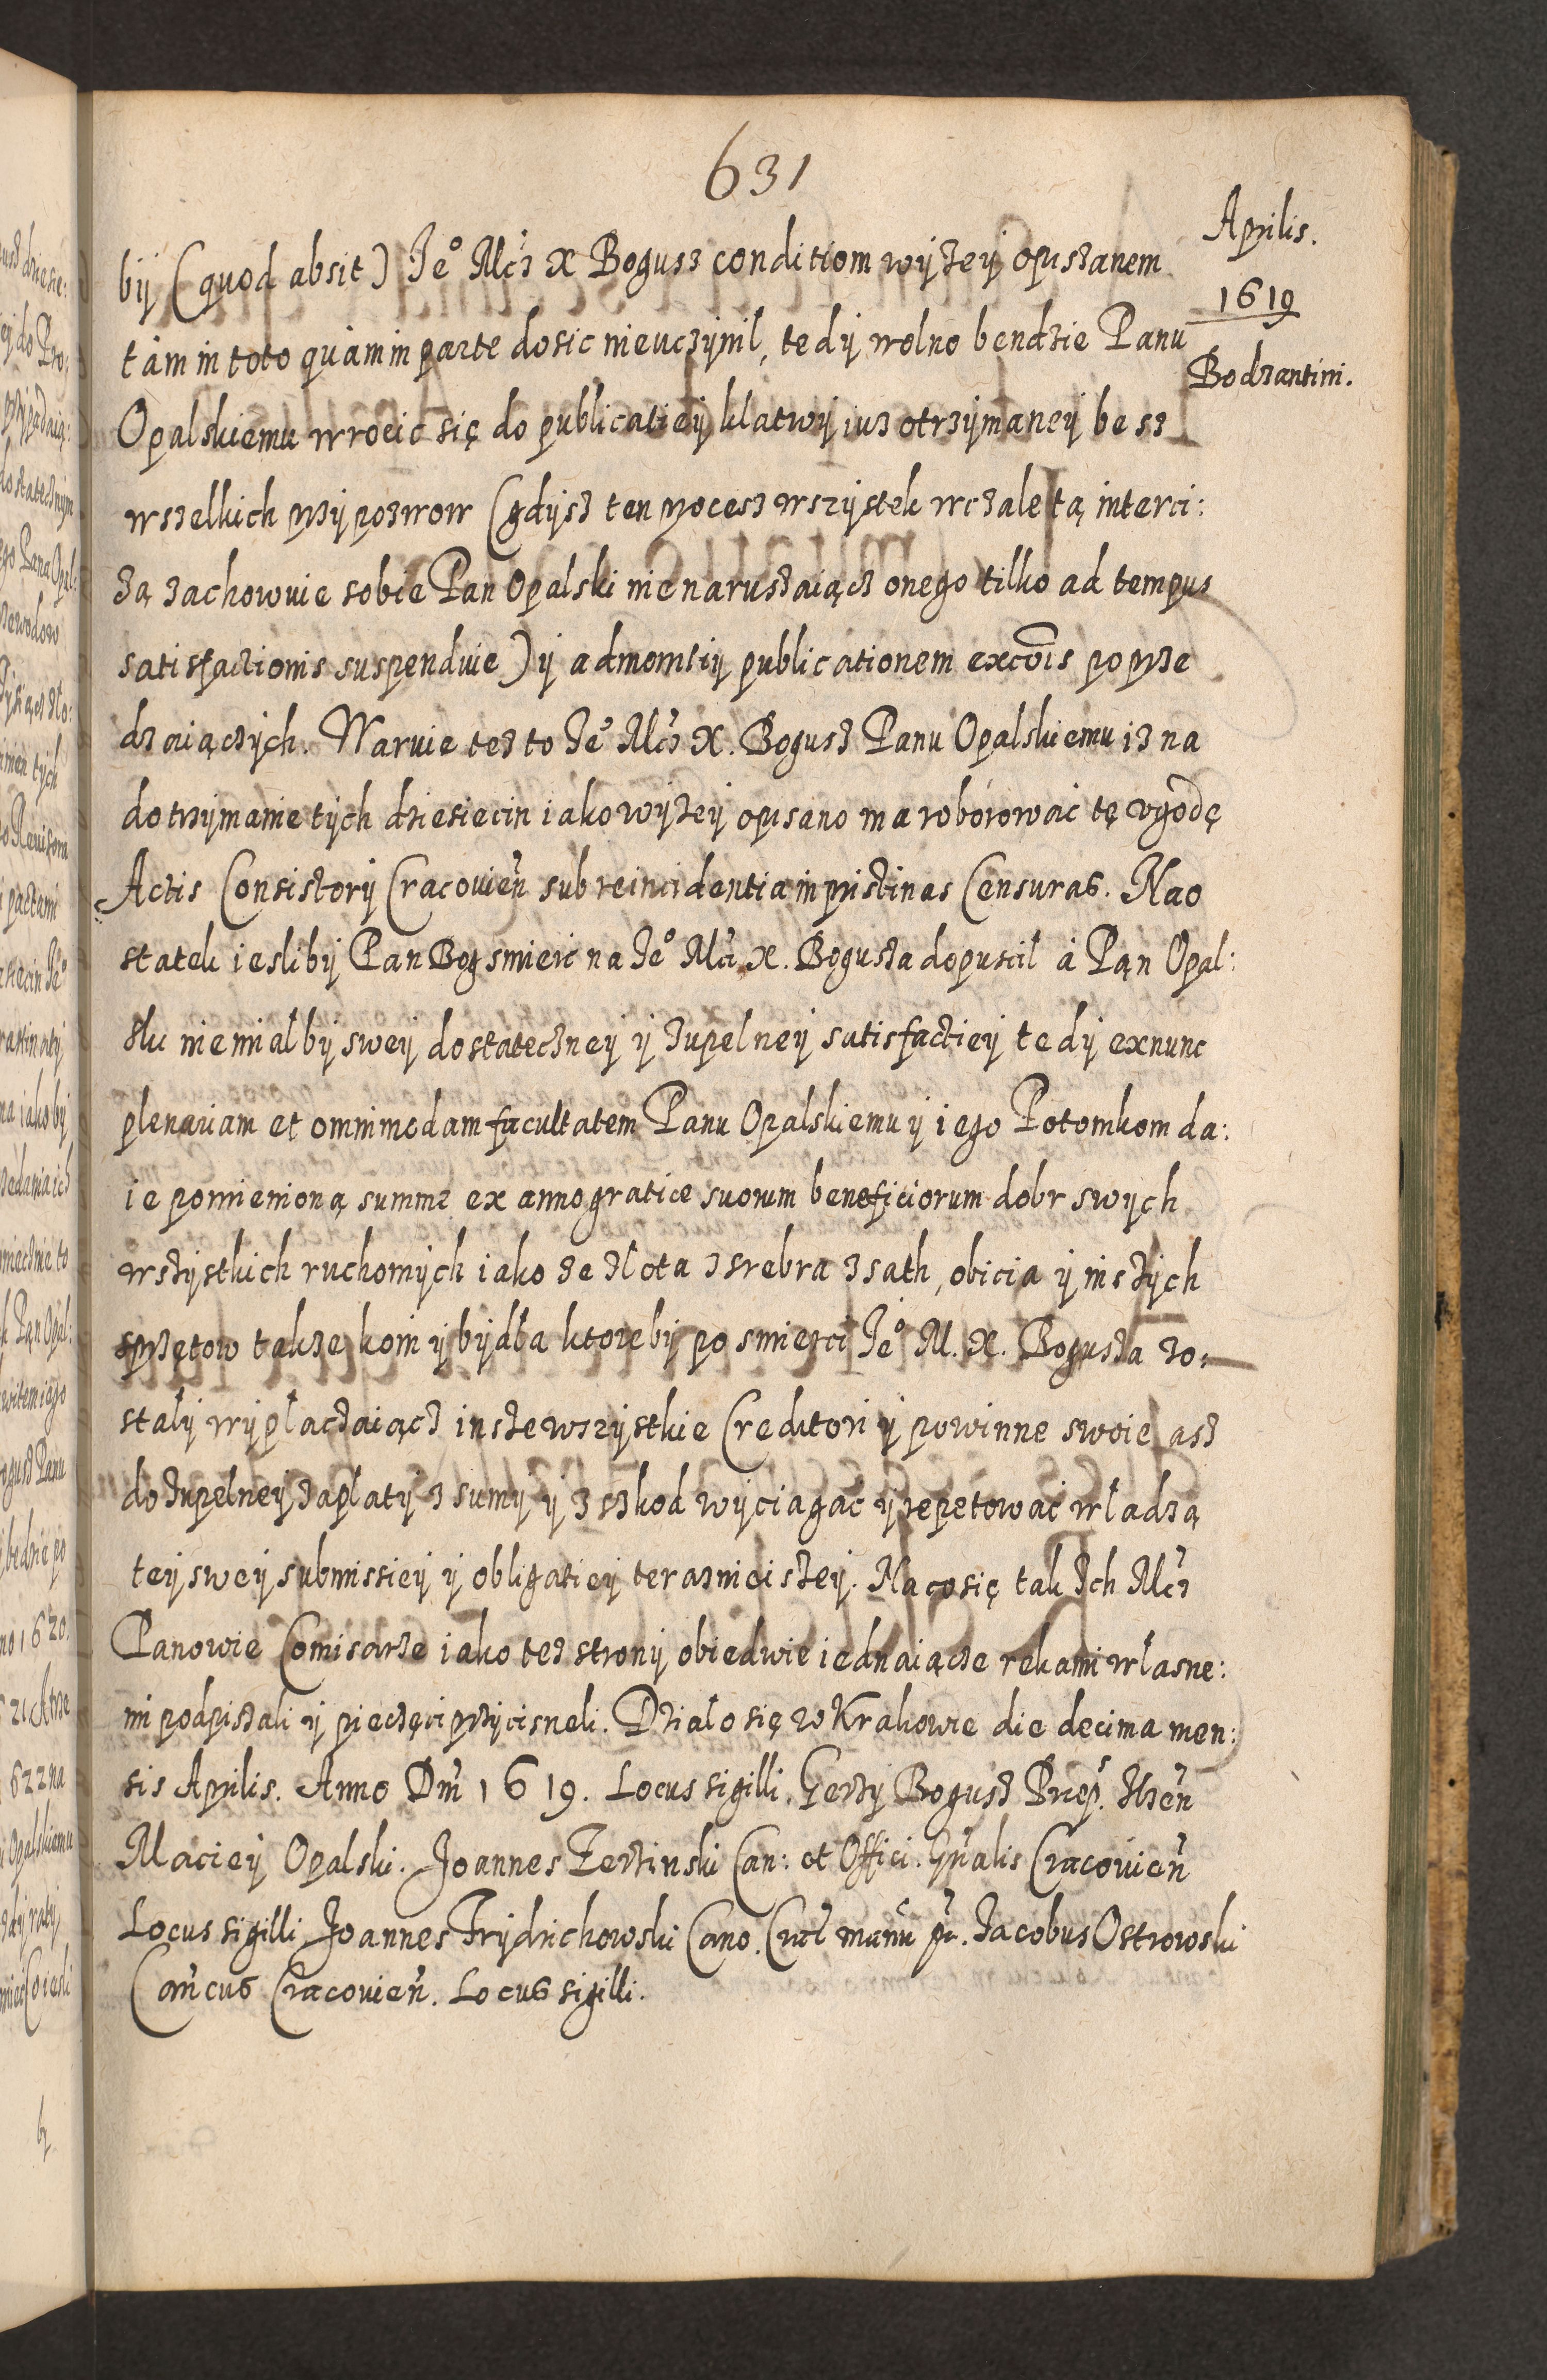 631
Aprilis.
1619
Bodzantini.
bÿ (quod absit) Jeº Mći X Bogusz conditiom wyżeÿ opiszanem
tàm in toto quàm in parte dosic nieuczÿnil, tedÿ wolno bendzie Panu
Opalskiemu wrocic się do publicatieÿ klatwÿ iuz otrzÿmaneÿ bess
wszelkich przÿpozwow (gdÿsz ten process wszÿstek wczale tą interci:
zą zachowuie sobie Pan Opalski nie naruszaiącz onego tilko ad tempus
satisfactionis suspenduie) ÿ admonitiÿ publicationem excōis poprze
dzaiączÿch. Waruie tez to Jeº Mći X. Bogusz Panu Opalskiemu iz na
dotrzÿmanie tÿch dziesiecin iako wÿzeÿ opisano ma roborowac tę vgodę
Actis Consistorÿ Cracovieñ sub reincidentia in pristinas Censuras. Nao
statek iesliby Pan Bog smierc na Jeº Mći X. Bogusza dopuscil à Pąn Opal:
ski niemialbÿ sweÿ dostateczneÿ ÿ zupelneÿ satisfactieÿ tedÿ exnunc
plenariam et omnimodam facultatem Panu Opalskiemu ÿ iego Potomkom da:
ie pomienioną summę ex anno gratiæ suorum beneficiorum dobr swÿch
wszÿstkich ruchomÿch iako ze złota z srebra z sath, obicia ÿ inszÿch
sprzętow takze koni ÿ bÿdła ktorebÿ po smierci Jeº M. X. Bogusza zo:
stalÿ wÿplaczaiącz insze wszÿstkie Creditori ÿ powinne swoie asz
do zupelneÿ zaplatÿ z sumÿ ÿ z szkod wÿciagac ÿ repetowac władzą
teÿ sweÿ submissieÿ ÿ obligatieÿ terazniciszeÿ. Na co się tak Ich Mći
Panowie Comisarze iako tez stronÿ obiedwie iednaiącze rekami własne:
mi podpiszali ÿ pieczęci przÿcisneli. Działo się w Krakowie die decima men:
sis Aprilis. Anno Dñi 1619. Locus sigilli. Gerzÿ Bogusz Præp.
Macieÿ Opalski. Joannes Zerzinski Can: et Offici. Gñalis Cracovieñ
Locus sigilli Joannes Frÿdrichowski Cano. Crac manu pr. Jacobus Ostrowski
Cañcus Cracovieñ. Locus sigilli.